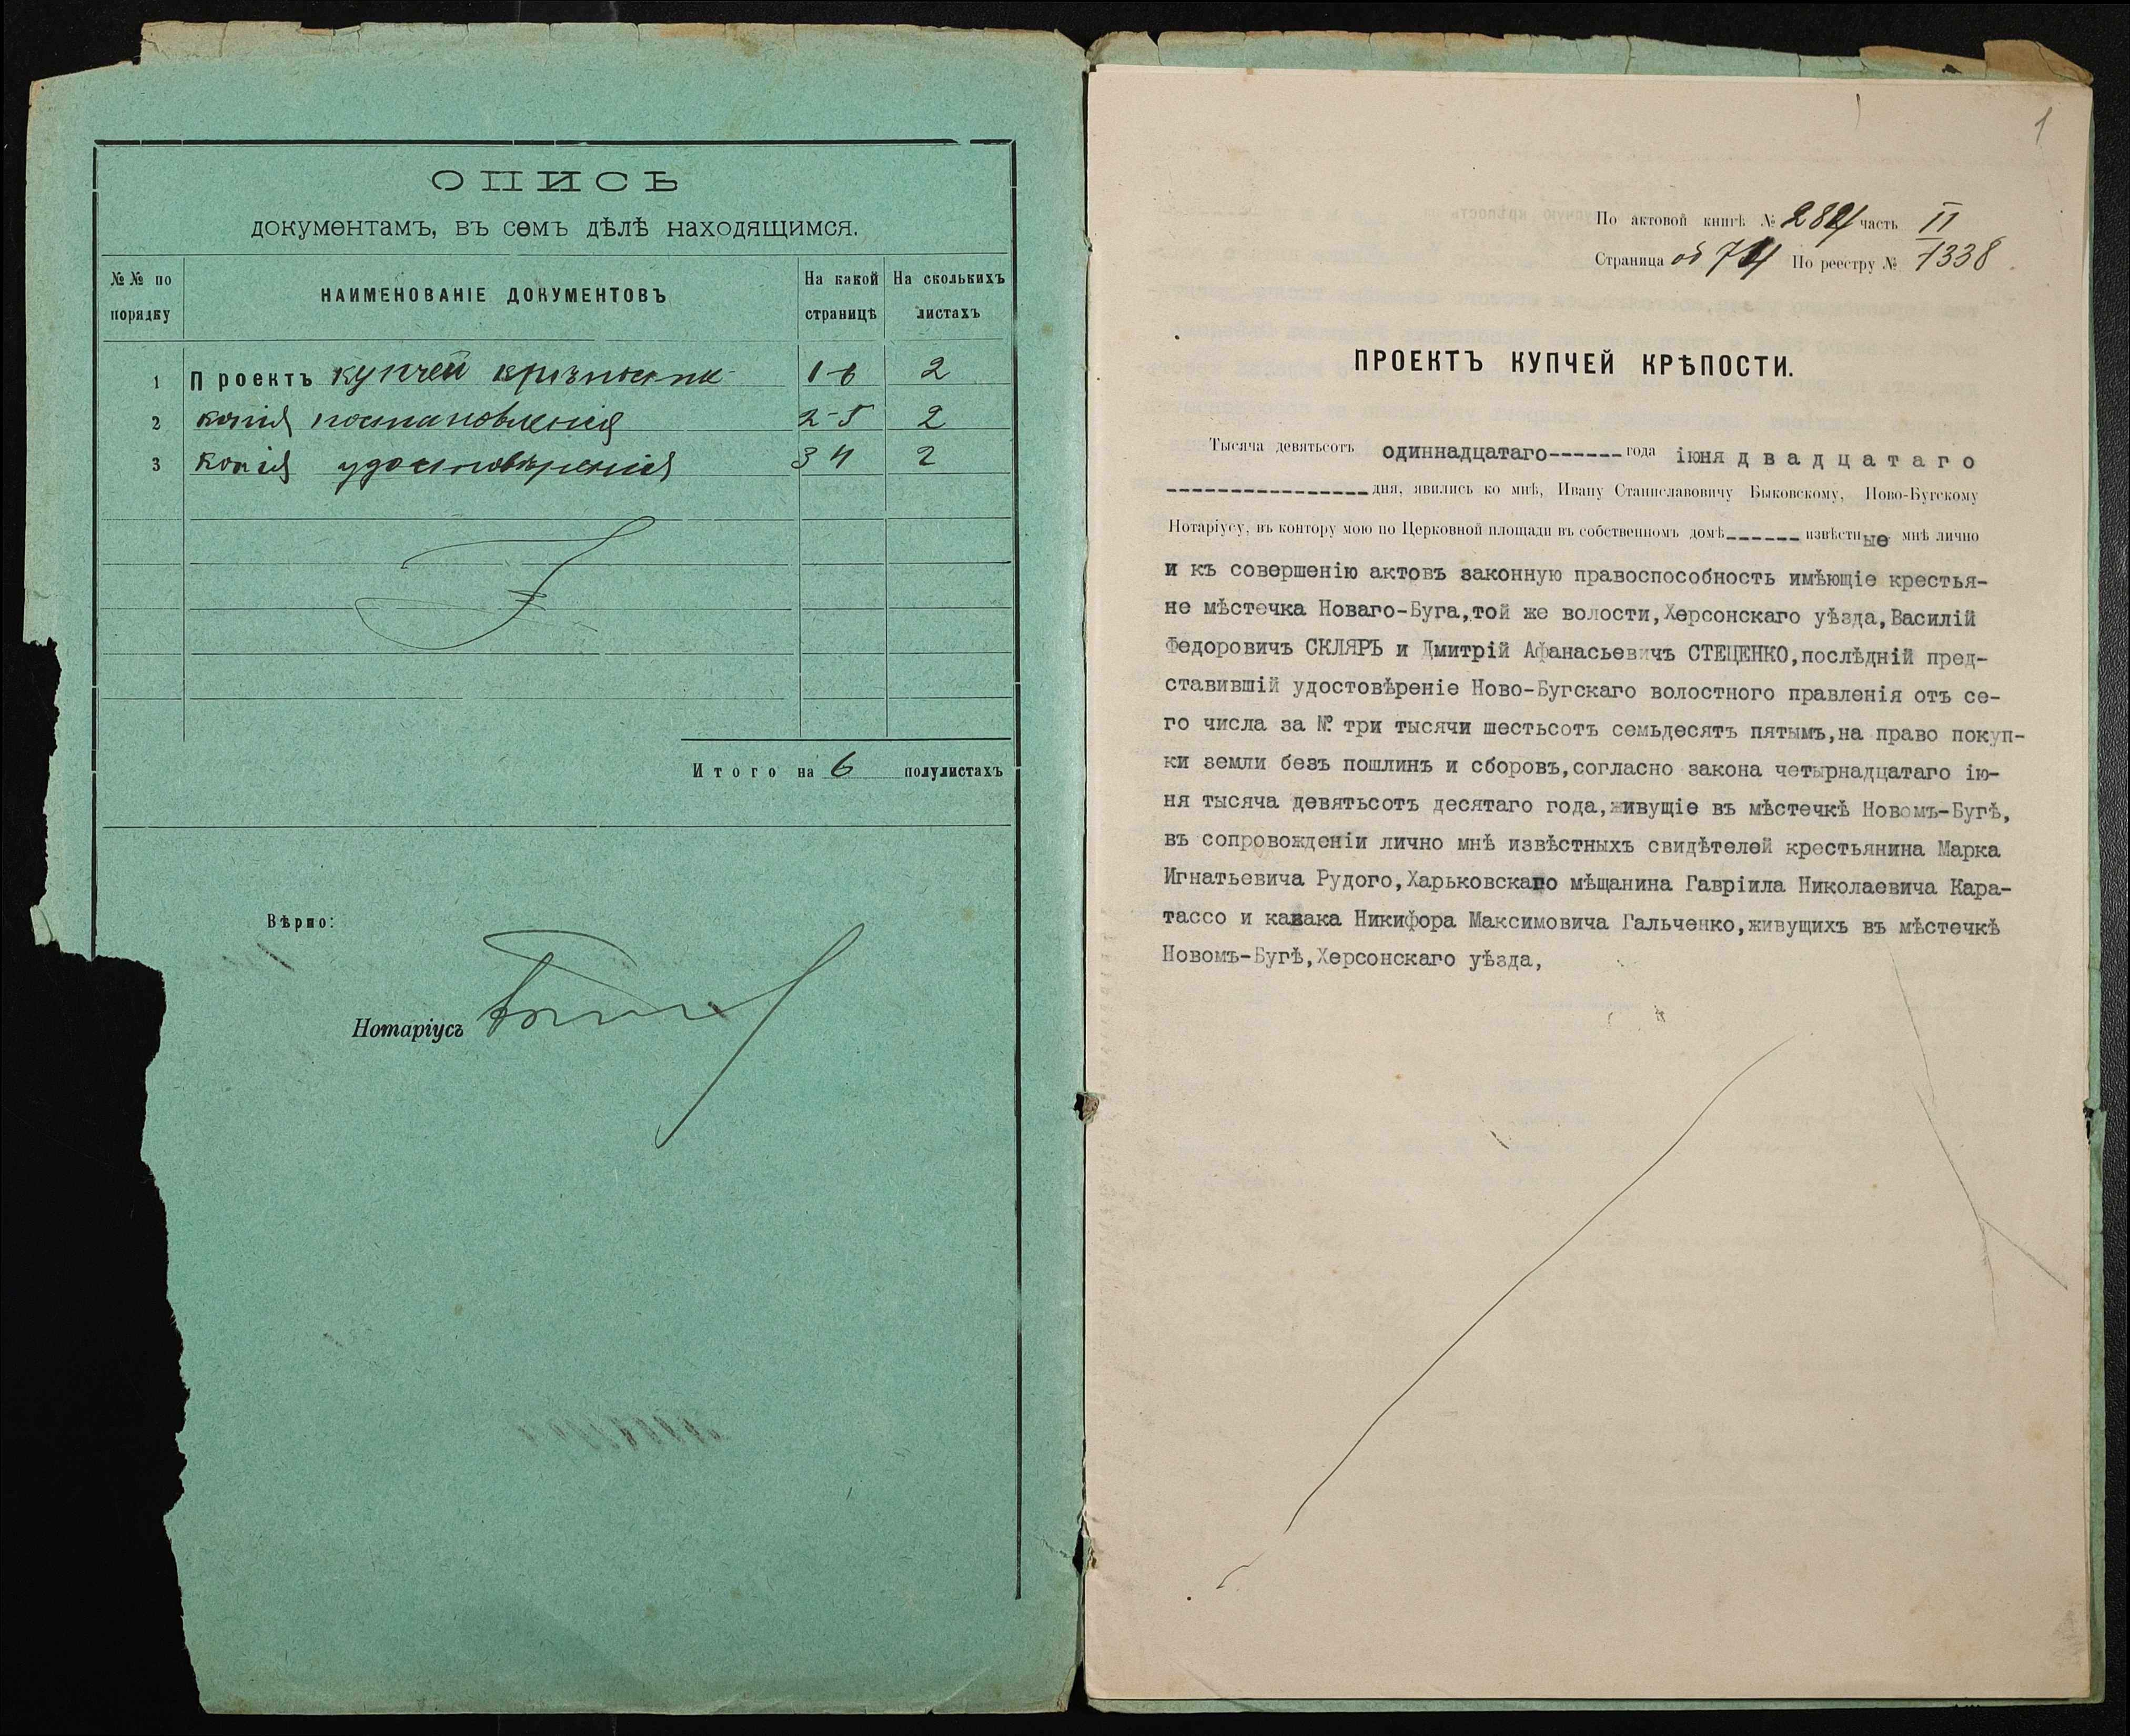 ОПИСЬ
документамъ, въ семъ дѣлѣ находящимся.
№№ по порядку
НАИМЕНОВАНІЕ ДОКУМЕНТОВЪ
На какой страницѣ
На сколькихъ листахъ
1 Проектъ купчей крѣпости 1-6 2
2 копія постановленія 2-5 2
3 Копія удостовѣренія 3 4 2
Итого на 6 полулистахъ
Вѣрно:
Нотаріусъ
1
По актовой книгѣ № часть II
Страница об По реестру № 1338
ПРОЕКТЪ КУПЧЕЙ КРѢПОСТИ.
Тысяча девятьсотъ одиннадцатаго------года іюня двадцатаго
----------------дня, явились ко мнѣ, Ивану Станиславовичу Быковскому, Ново-Бугскому
Нотаріусу, въ контору мою по Церковной площади въ собственномъ домѣ------ извѣстные мнѣ лично
и къ совершенію актовъ законную правоспособность имѣющіе крестья-
не мѣстечка Новаго-Буга,той же волости,Херсонскаго уѣзда,Василій
Федоровичъ СКЛЯРЪ и Дмитрій Афанасьевичъ СТЕЦЕНКО,послѣдній пред-
ставившій удостовѣреніе Ново-Бугскаго волостного правленія отъ се-
го числа за № три тысячи шестьсотъ семьдесятъ пятымъ,на право покуп-
ки земли безъ пошлинъ и сборовъ,согласно закона четырнадцатаго ію-
ня тысяча девятьсотъ десятаго года,живущіе въ мѣстечкѣ Новомъ-Бугѣ,
въ сопровожденіи лично мнѣ извѣстныхъ свидѣтелей крестьянина Марка
Игнатьевича Рудого,Харьковскаго мѣщанина Гавріила Николаевича Кара-
тассо и казака Никифора Максимовича Гальченко,живущихъ въ мѣстечкѣ
Новомъ-Бугѣ,Херсонскаго уѣзда,